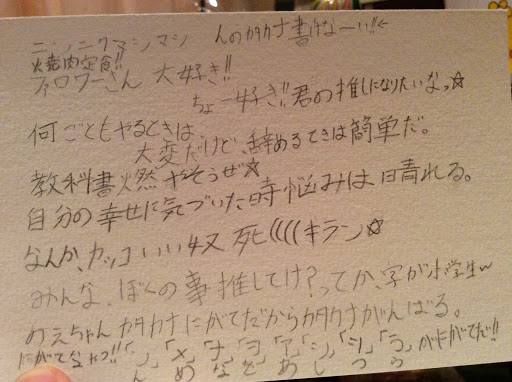 ニンニクマシマシ んのカタカナ書けなーい!!←
焼肉定食!!
フォロワーさん 大好き!!
ちょー好き!!君の推しになりたいなっ☆
何ごともやるときは、
大変だけど、辞めるときは簡単だ。
教科書燃やそうぜ☆
自分の幸せに気づいた時悩みは晴れる。
なんか、カッコいい奴 死((((キラン☆
みんな、ぼくの事推してけ?ってか、字が小学生~
のえちゃん カタカナにがてだからカタカナがんばる。
にがてなやつ!!「ン」「メ」「ナ」「ヲ」「ア」「シ」「ツ」「ラ」がにがてだ!!
ん め な を あ し つ ら